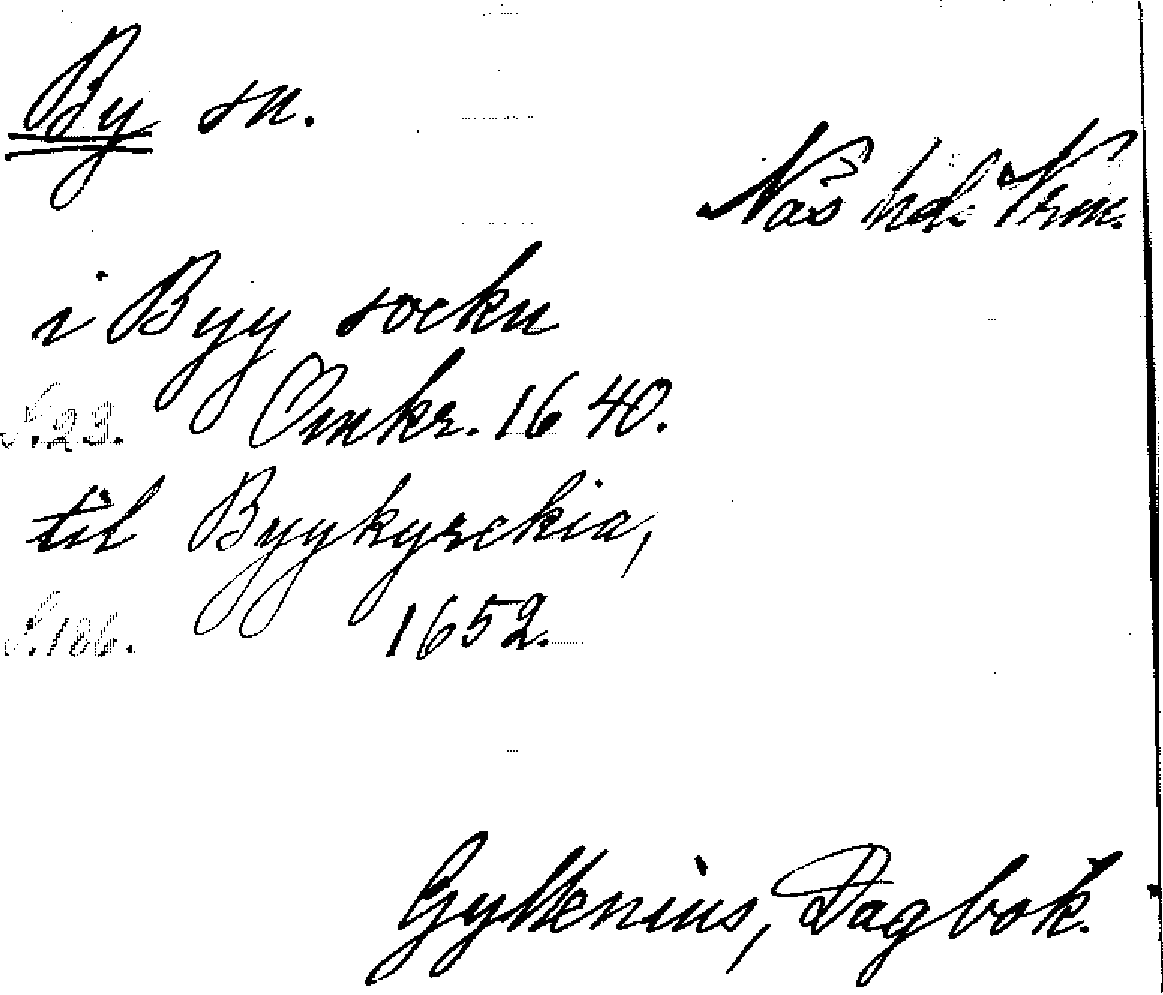 By sn.
Näs hd. Vrm.
i Byy sockn
S. 23. Omkr. 1640.
til Byykyrckia,
S. 186. 1652.
Gyllenius, Dagbok.